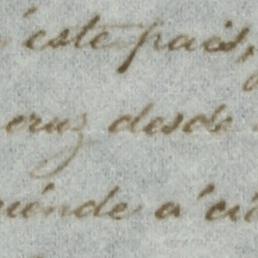 este pais,
cruz desde
iénde a'